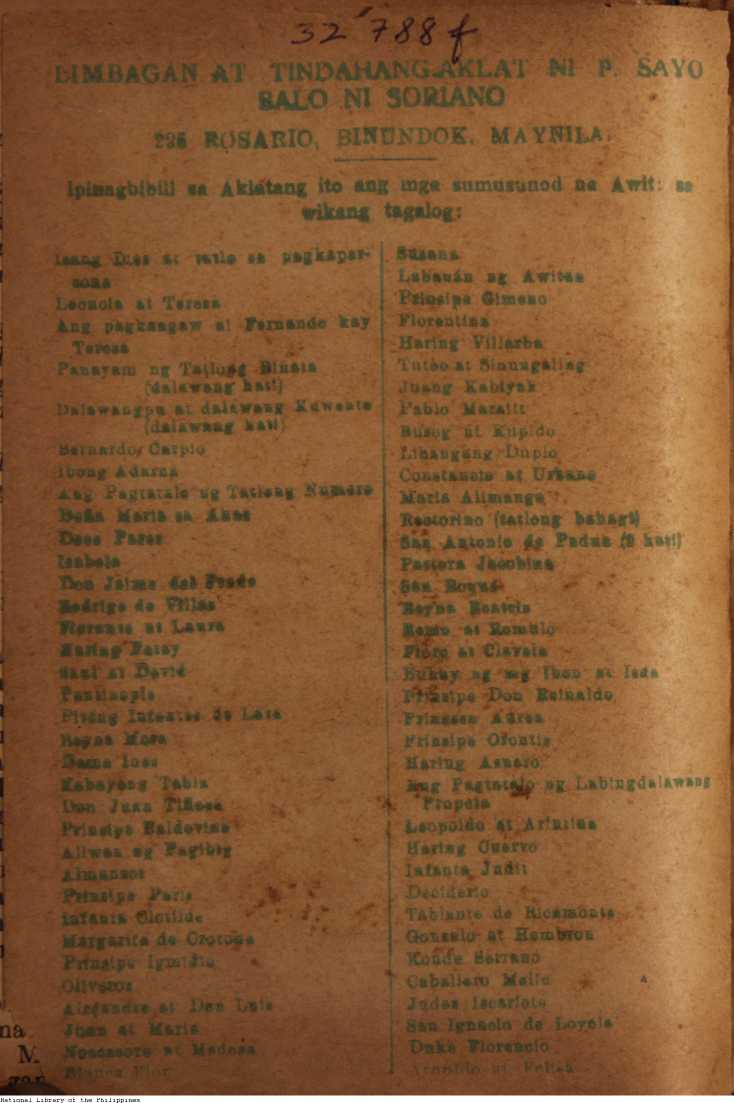 32788f
LIMBAGAN AT TINDAHANG-AKLAT NI P. SAYO
BALO NI SORIANO
235 ROSARIO, BINUNDOK, MAYNILA.
Ipinagbibili sa Aklatang ito ang mga sumusunod na Awit: sa
wikang tagalog:
Isang Dios at tatlo sa pagkaper-
sona
Leoncia at Teresa
Ang pagkaagaw ni Fernando kay
Teresa
Panayam ng Tatlong Binata
(dalawang hati)
Dalawangpu at dalawang Kuwento
(dalawang hati)
Bernardo Carpio
Ibong Adarna
Ang Pagtatalo ng Tatlong Numero
Doña Maria sa Ahas
Doce Pares
Isabela
Don Jaime del Prado
Rodrigo de Villas
Florante at Laura
Haring Patay
Saul at David
Pantinople
Pitong Infantes de Lara
Reyna Mora
Dama Ines
Kabayong Tabla
Don Juan Tiñoso
Prinsipe Baldovino
Aliwan ng Pagibig
Almansor
Prinsipe Paris
Infanta Clotilde
Margarita de Crotona
Prinsipe Igmidio
Oliveros
Alejandre at Don Luis
Juan at Maria
at Medosa
Blanca Flor
Susana
Labanán ng Awitan
Prinsipe Gimeno
Florentina
Haring Villarba
Totoo at Sinungaling
Juang Kabiyak
Pablo Maralit
Busog ni Kupido
Libangang Duplo
Constancio at Urbano
Maria Alimango
Rectorino (tatlong bahagi)
San Antonio de Padua (2 hati)
Pastora Jacobina
San Roque
Reyna Encnela
Remo at Romulo
Floro at Clavela
Buhay ng mg Ibon at Isda
Prinsipe Don Reinaldo
Prinsesa Adrea
Prinsipe Orontis
Haring Asuero
Ang Pagtatalo ng Labingdalawang
Propeta
Leopoldo at
Haring Cuervo
Infanta Judit
Deciderio
Tablante de Ricamonte
Gonzalo at
Konde Serrano
Caballero
Judas Iscariote
San Ignacio de Loyola
Duke Florencio
Arnoldo at Felisa
na
M
National Library of the Philippines